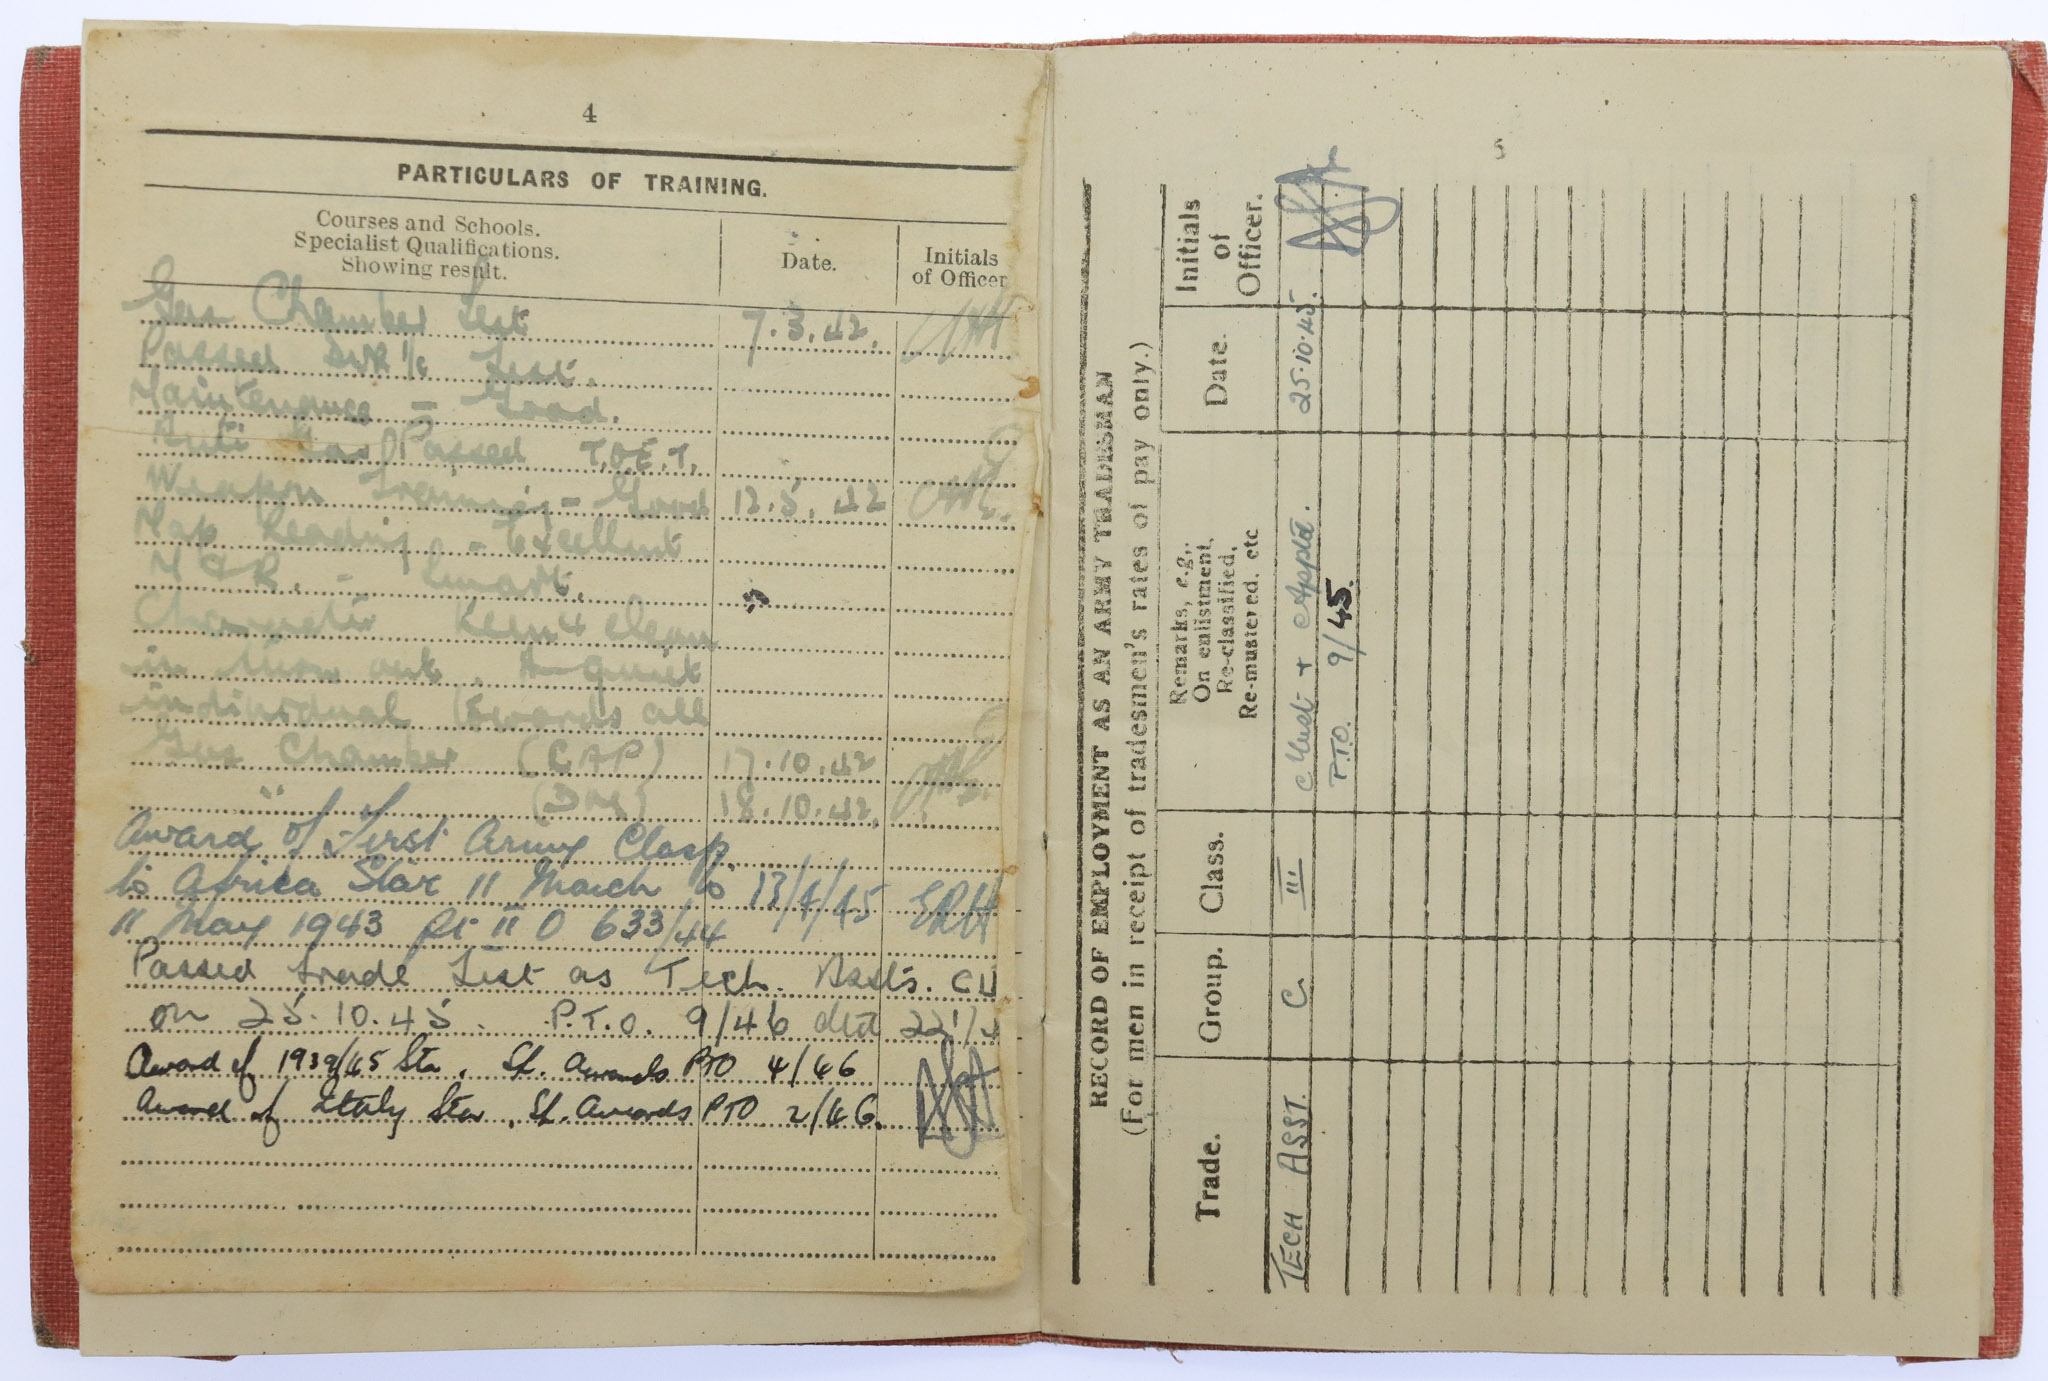 4
PARTICULARS OF TRAINING.
Courses and Schools.
Specialist Qualifications.
Showing result.
Date.
Initials
of Officer
Gas Chamber Test 7.3.42.
Passed Dvr i/c Test.
Maintenance = Good.
Anti Gas Passed T.O.E.T.
Weapon Training = Good 12.5.42
Map Reading = Excellent
Smart.
Character Keen & clean
in turn out. A quiet
individual towards all
Gas Chamber (CAP) 17.10.42
" 18.10.42.
Award of First Army Clasp
to Africa Star 11 March to 13/4/45 ERH
11 May 1943 Pt II O 633/44
Passed Trade Test as Tech. Assts. CIII
on 25.10.45. P.T.O. 9/46 dtd
Award of 1939/45 Star. Sf. Awards PTO 4/46
Award of Italy Star. Sf. Awards PTO 2/46.
5
RECORD OF EMPLOYMENT AS AN ARMY TRADESMAN
(For men in receipt of tradesmen's rates of pay only.)
Trade.
Group.
Class.
Remarks, e.g.,
On enlistment,
Re-classified,
Re-mustered, etc
Date.
Initials
of
Officer.
TECH ASST. C III + Apptd. 25.10.45.
P.T.O. 9/45.